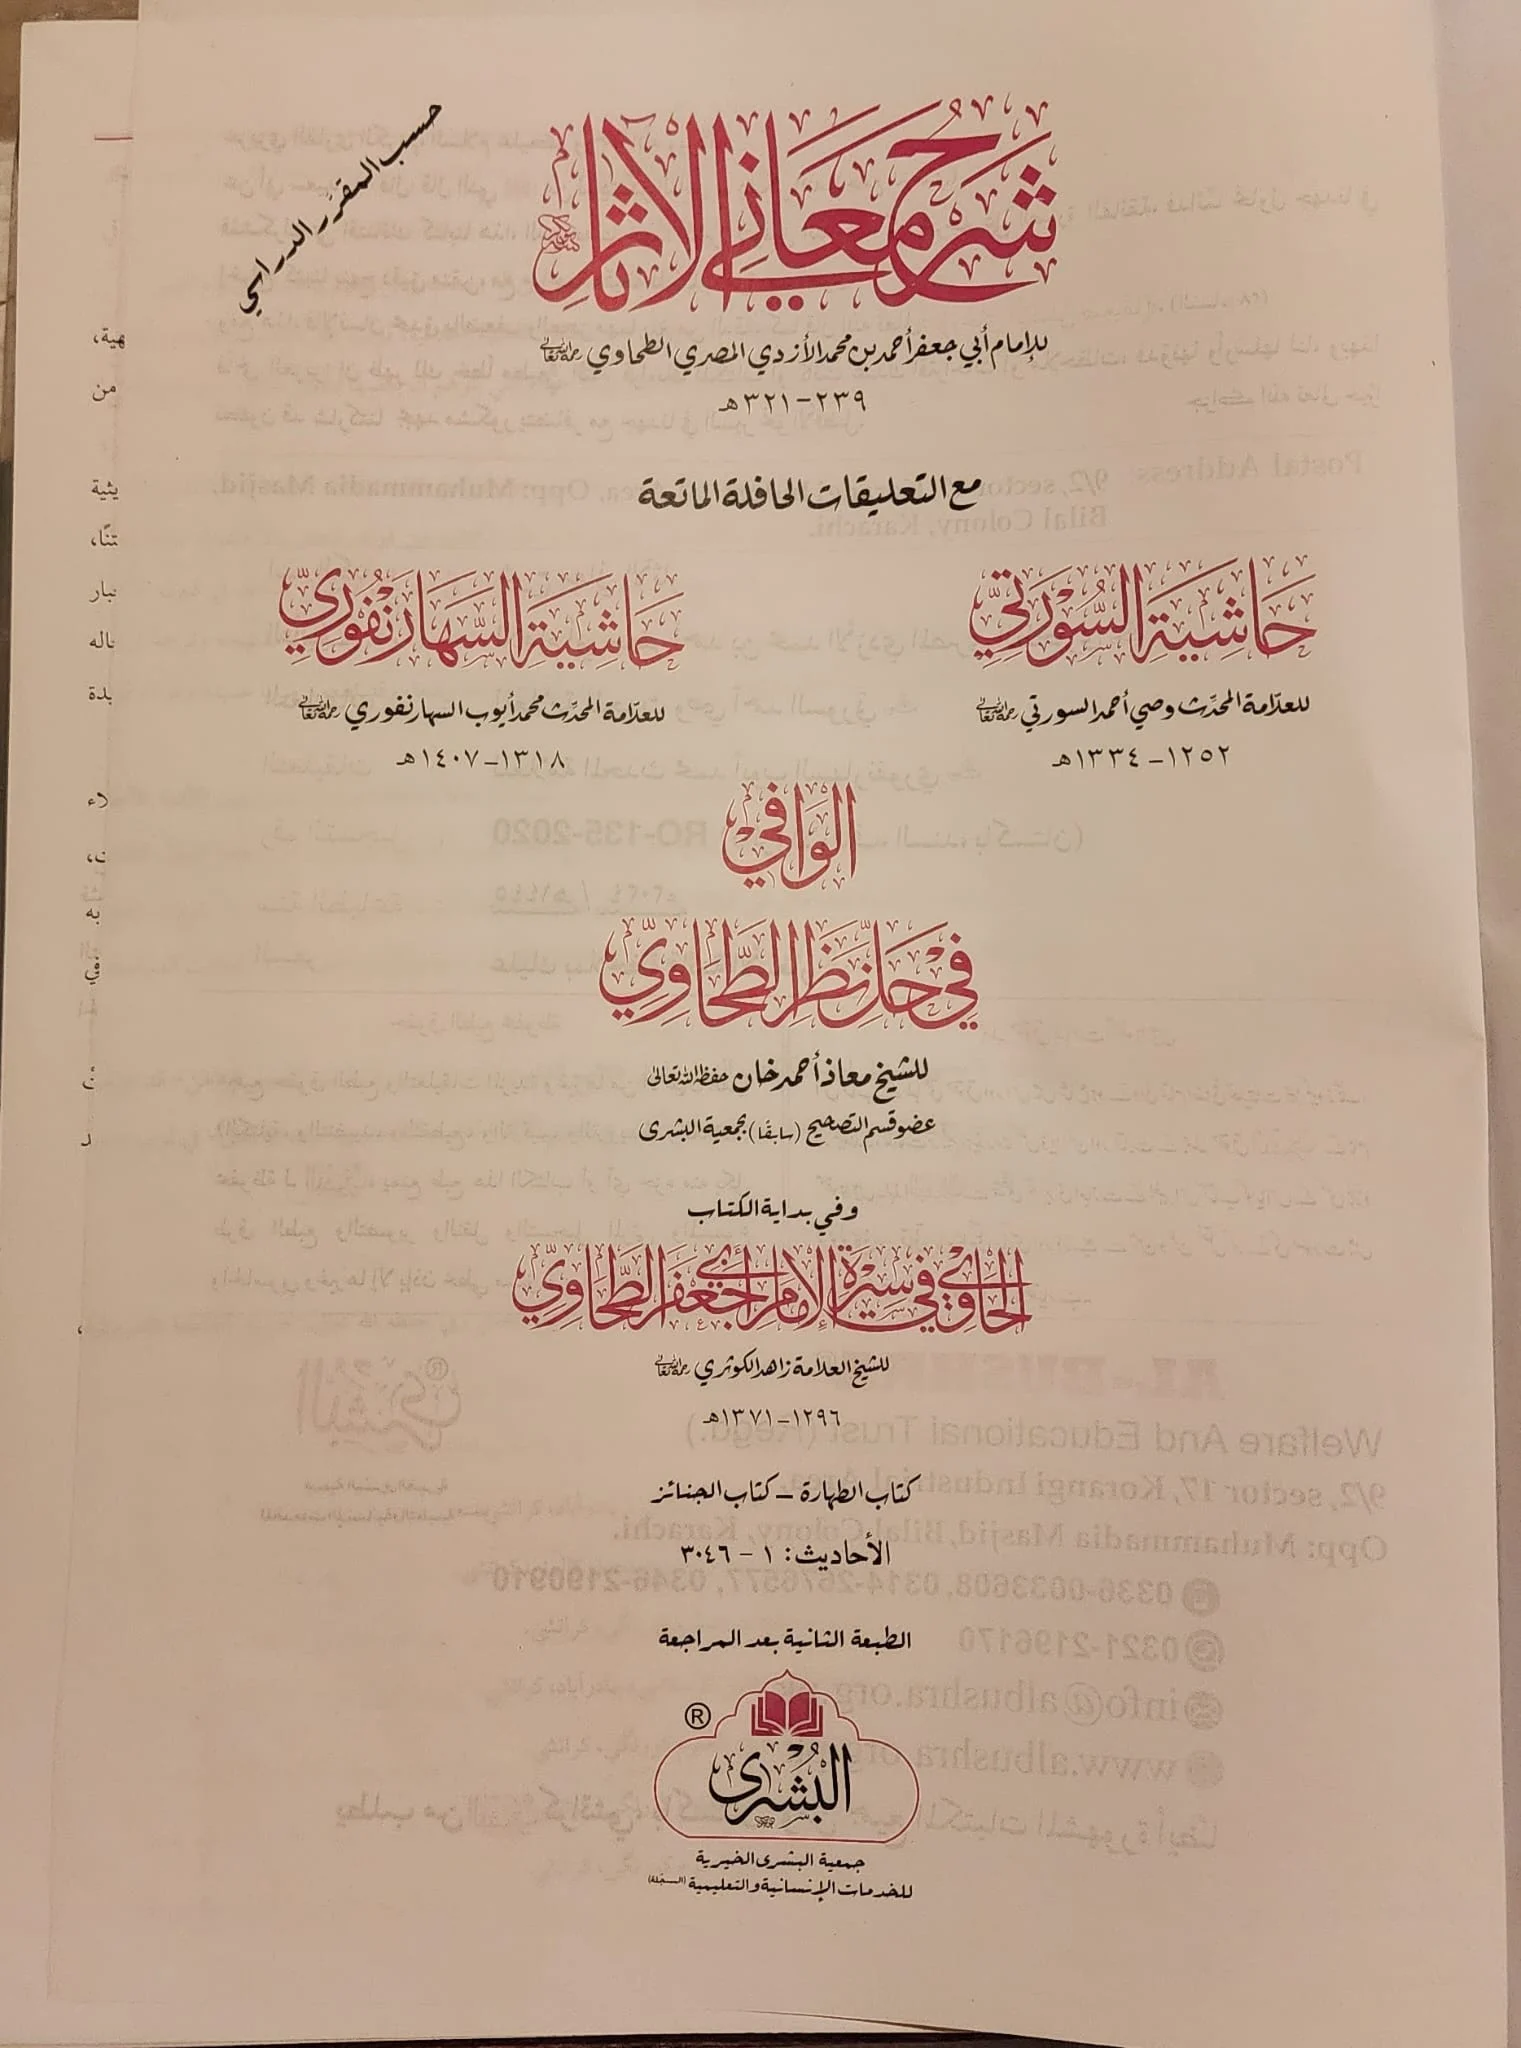 حسب المقرر الدراسي
شرح معاني الآثار
للإمام أبي جعفر أحمد بن محمد الأزدي المصري الطحاوي رحمه الله تعالى
٢٣٩-٣٢١هـ
مع التعليقات الحافلة الماتعة
حَاشِيَة السُّوْرَتِيّ
للعلّامة المحدِّث وصي أحمد السورتي رحمه الله تعالى
١٢٥٢-١٣٣٤هـ
حَاشِيَة السَّهَارَنْفُوْرِيّ
للعلّامة المحدِّث محمد أيوب السهارنفوري رحمه الله تعالى
١٣١٨-١٤٠٧هـ
الوَافِي
فِي حَلِّ نَظَرِ الطَّحَاوِيّ
للشيخ معاذ أحمد خان حفظه الله تعالى
عضو قسم التصحيح (سابقًا) بجمعية البشرى
وفي بداية الكتاب
الحَاوِي فِي سِيْرَةِ الإِمَامِ أَبِي جَعْفَر الطَّحَاوِيّ
للشيخ العلامة زاهد الكوثري رحمه الله تعالى
١٢٩٦-١٣٧١هـ
كتاب الطهارة – كتاب الجنائز
الأحاديث: ١ - ٣٠٤٦
الطبعة الثانية بعد المراجعة
®
البُشْرٰى
جمعية البشرى الخيرية
للخدمات الإنسانية والتعليمية (المسجّلة)